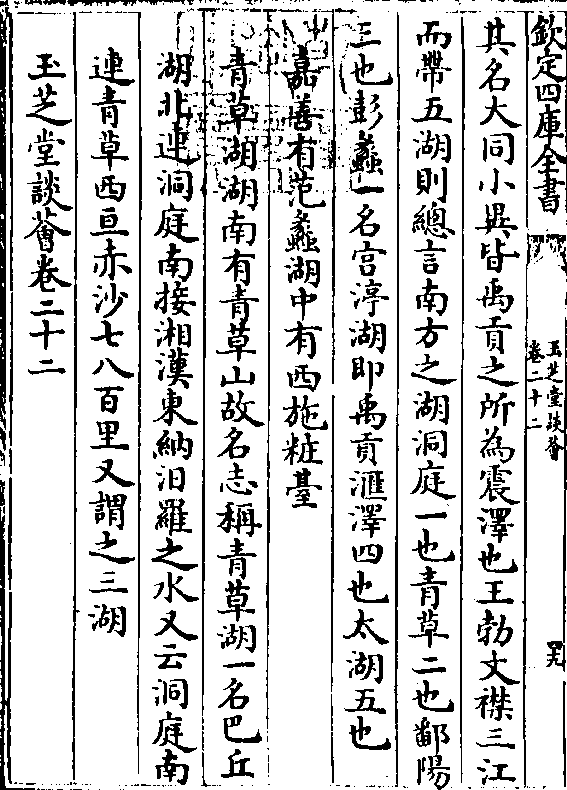 欽定四庫全書
玉芝堂談薈
卷二十二
四九
其名大同小異皆禹貢之所為震澤也王勃文襟三江
而帶五湖則總言南方之湖洞庭一也青草二也鄱陽
三也彭蠡一名宫渟湖即禹貢滙澤四也太湖五也
嘉善有范蠡湖中有西施粧臺
青草湖湖南有青草山故名志稱青草湖一名巴丘
湖北連洞庭南接湘漢東納汨羅之水又云洞庭南
連青草西亘赤沙七八百里又謂之三湖
玉芝堂談薈卷二十二